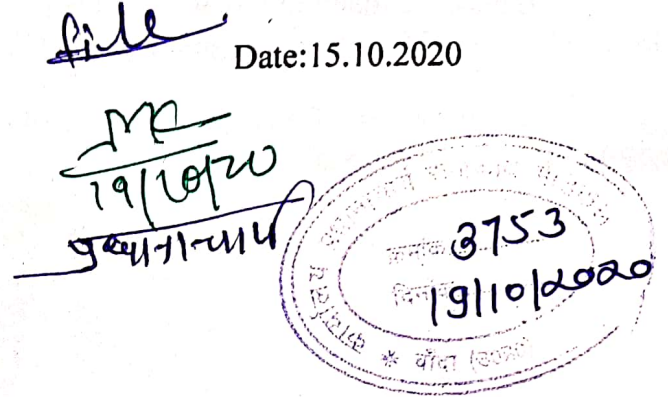 file
Date:15.10.2020
19/10/20
प्रधानाचार्य
क्रमांक 3753
दिनांक 19/10/2020
कार्यालय * बाँदा (उ०प्र०)